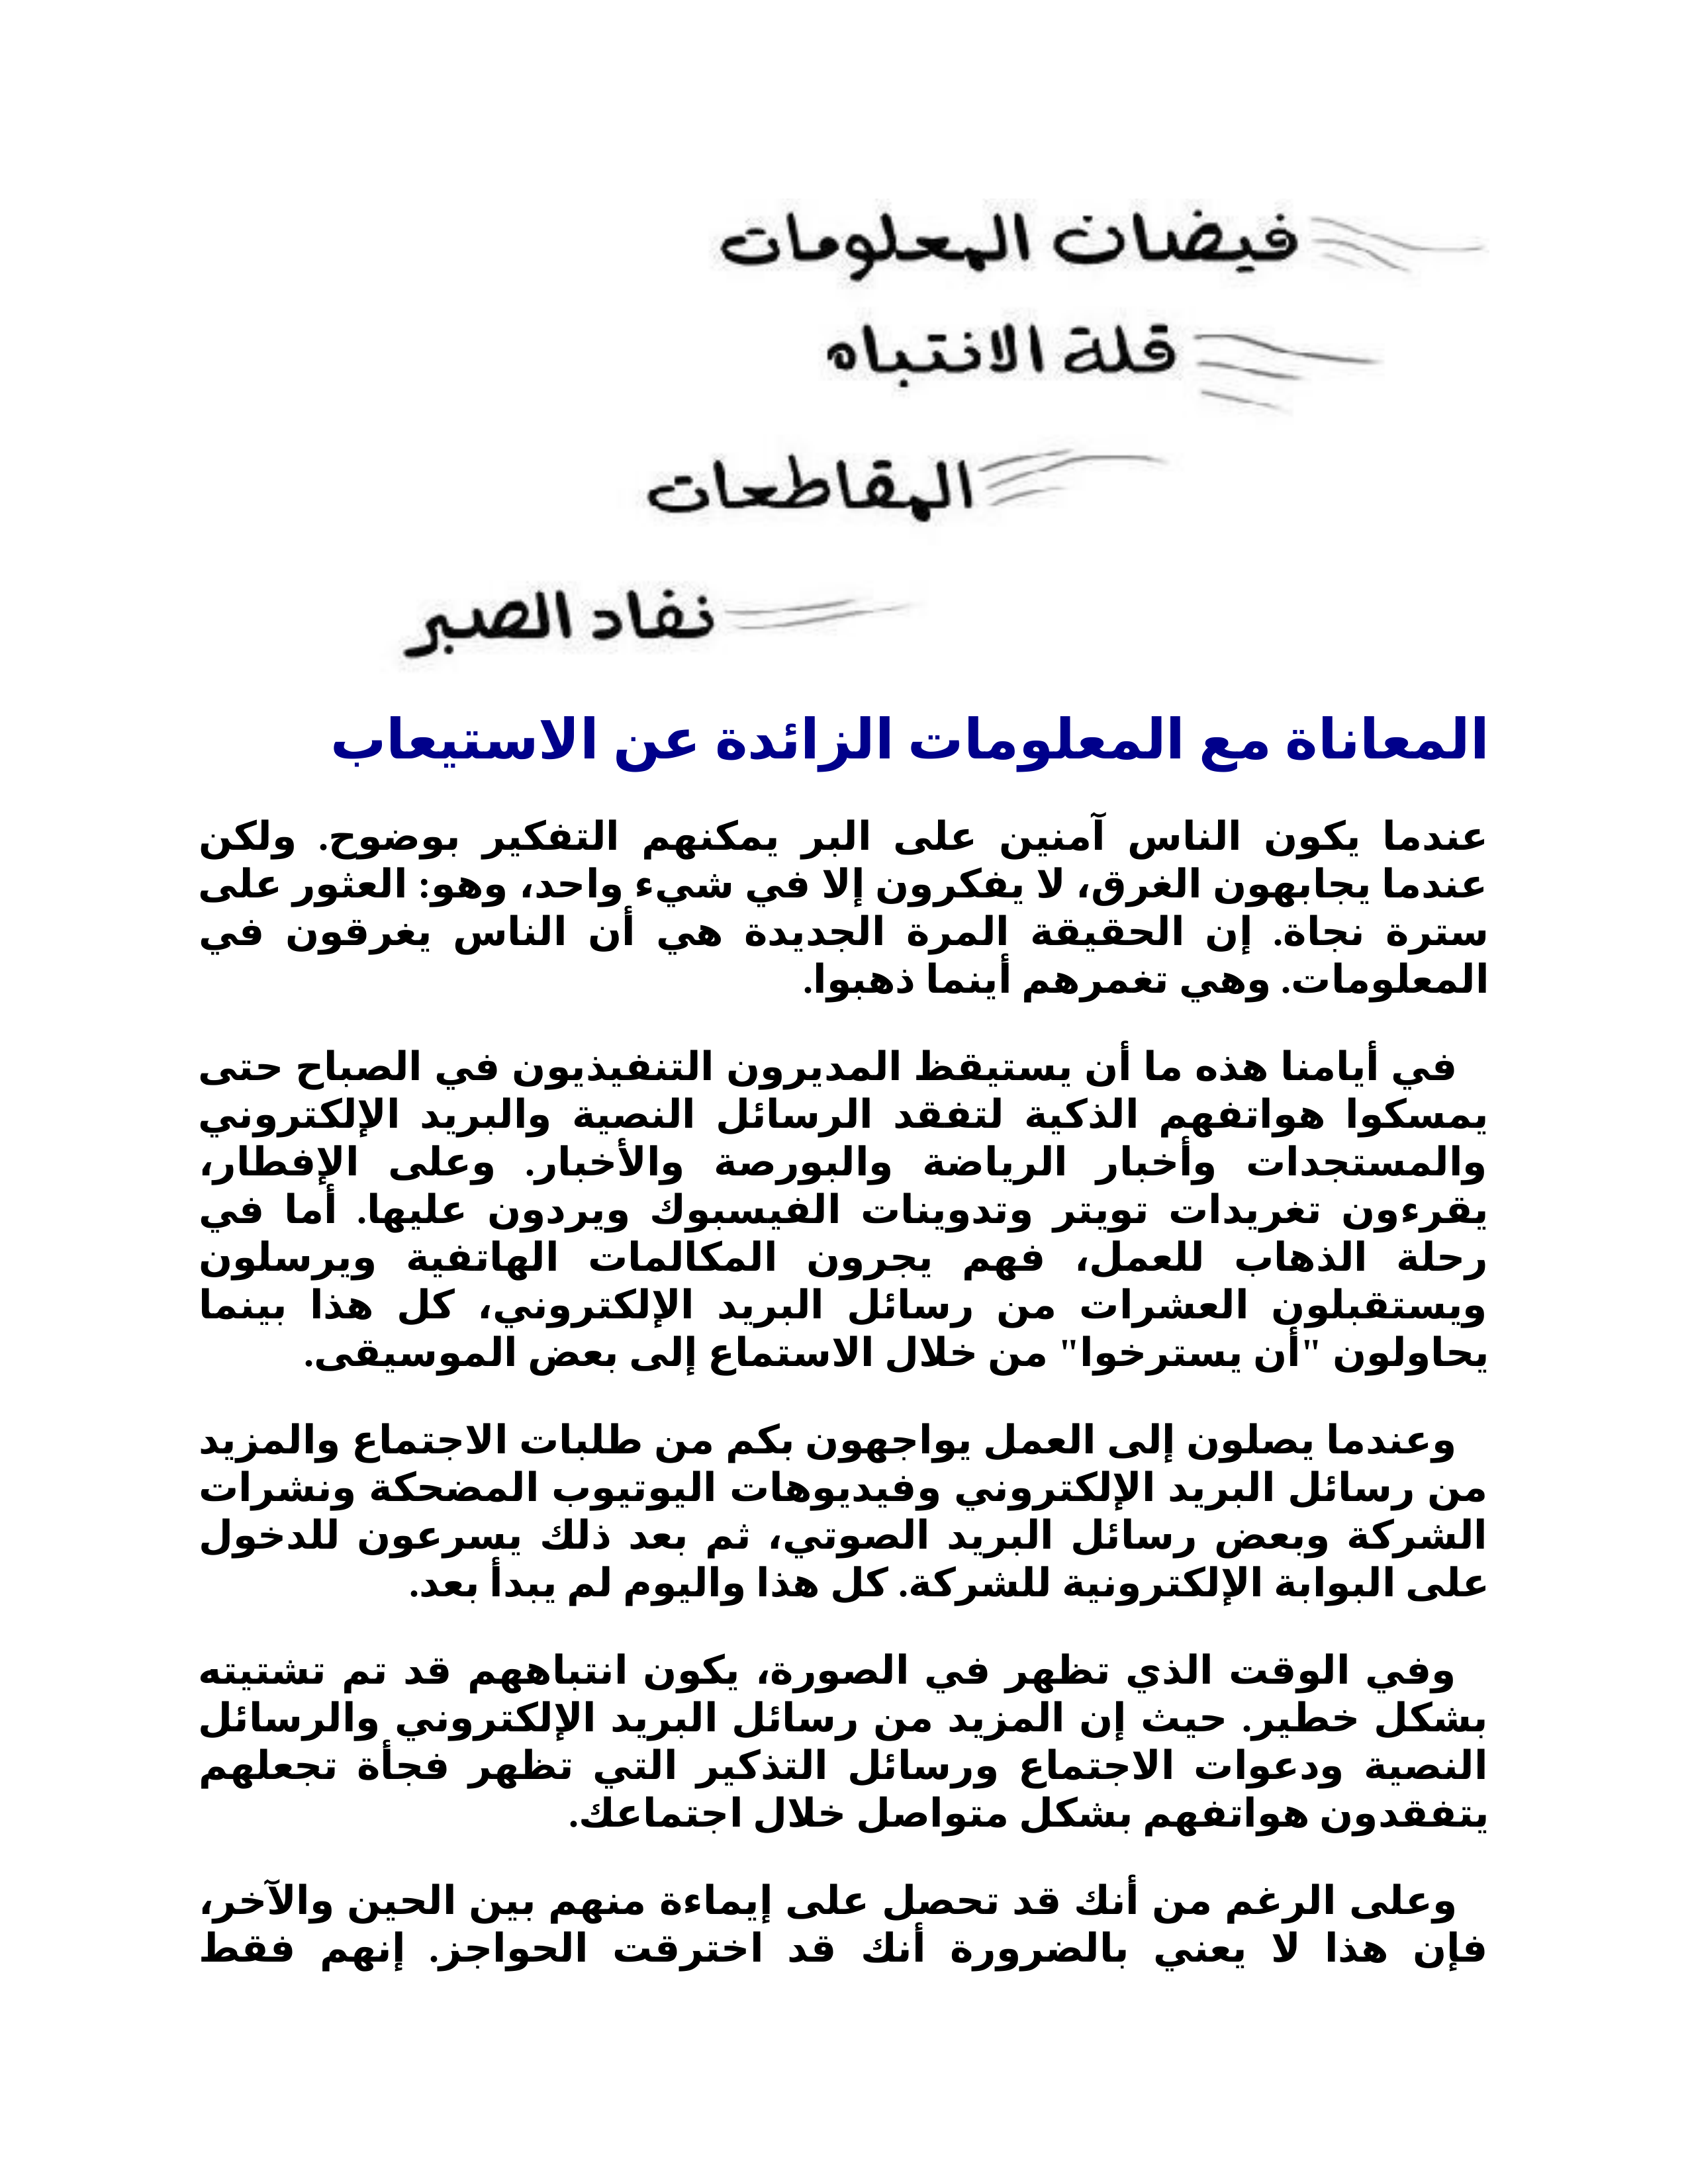 فيضان المعلومات
قلة الانتباه
المقاطعات
نفاد الصبر
المعاناة مع المعلومات الزائدة عن الاستيعاب
عندما يكون الناس آمنين على البر يمكنهم التفكير بوضوح. ولكن
عندما يجابهون الغرق، لا يفكرون إلا في شيء واحد، وهو: العثور على
سترة نجاة. إن الحقيقة المرة الجديدة هي أن الناس يغرقون في
المعلومات. وهي تغمرهم أينما ذهبوا.
في أيامنا هذه ما أن يستيقظ المديرون التنفيذيون في الصباح حتى
يمسكوا هواتفهم الذكية لتفقد الرسائل النصية والبريد الإلكتروني
والمستجدات وأخبار الرياضة والبورصة والأخبار. وعلى الإفطار،
يقرءون تغريدات تويتر وتدوينات الفيسبوك ويردون عليها. أما في
رحلة الذهاب للعمل، فهم يجرون المكالمات الهاتفية ويرسلون
ويستقبلون العشرات من رسائل البريد الإلكتروني، كل هذا بينما
يحاولون "أن يسترخوا" من خلال الاستماع إلى بعض الموسيقى.
وعندما يصلون إلى العمل يواجهون بكم من طلبات الاجتماع والمزيد
من رسائل البريد الإلكتروني وفيديوهات اليوتيوب المضحكة ونشرات
الشركة وبعض رسائل البريد الصوتي، ثم بعد ذلك يسرعون للدخول
على البوابة الإلكترونية للشركة. كل هذا واليوم لم يبدأ بعد.
وفي الوقت الذي تظهر في الصورة، يكون انتباههم قد تم تشتيته
بشكل خطير. حيث إن المزيد من رسائل البريد الإلكتروني والرسائل
النصية ودعوات الاجتماع ورسائل التذكير التي تظهر فجأة تجعلهم
يتفقدون هواتفهم بشكل متواصل خلال اجتماعك.
وعلى الرغم من أنك قد تحصل على إيماءة منهم بين الحين والآخر،
فإن هذا لا يعني بالضرورة أنك قد اخترقت الحواجز. إنهم فقط